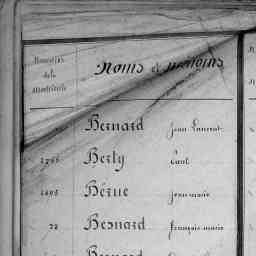 Numéros
de la
matricule
Noms et prénoms
Bernard Jean Laurent
Berty Paul
1495 Bérue Jean marie
78 Besnard françois marie
Besnard